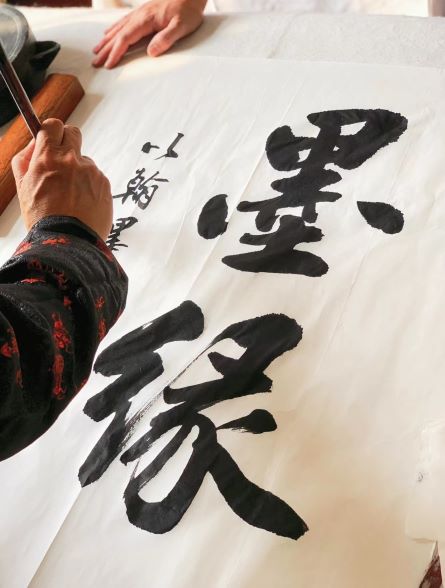 墨缘
以翰墨